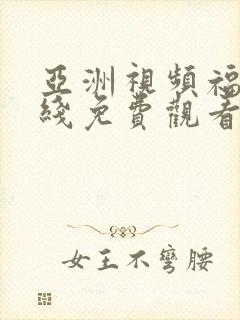 亞洲視頻福
綫免費觀看
女王不彎腰